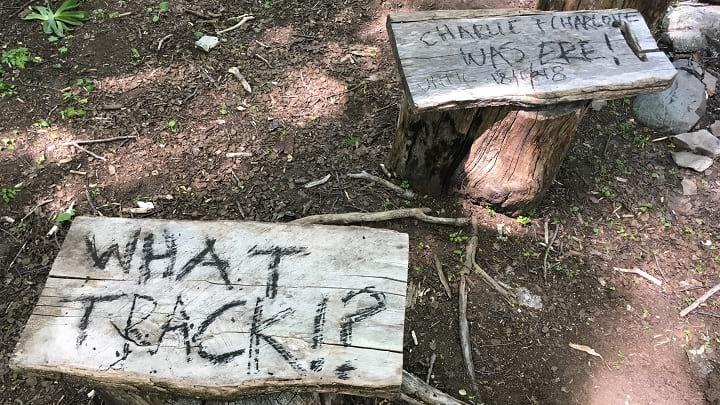 CHARLIE + CHARLOTTE
WAS ERE!
WHAT
TRACK!?